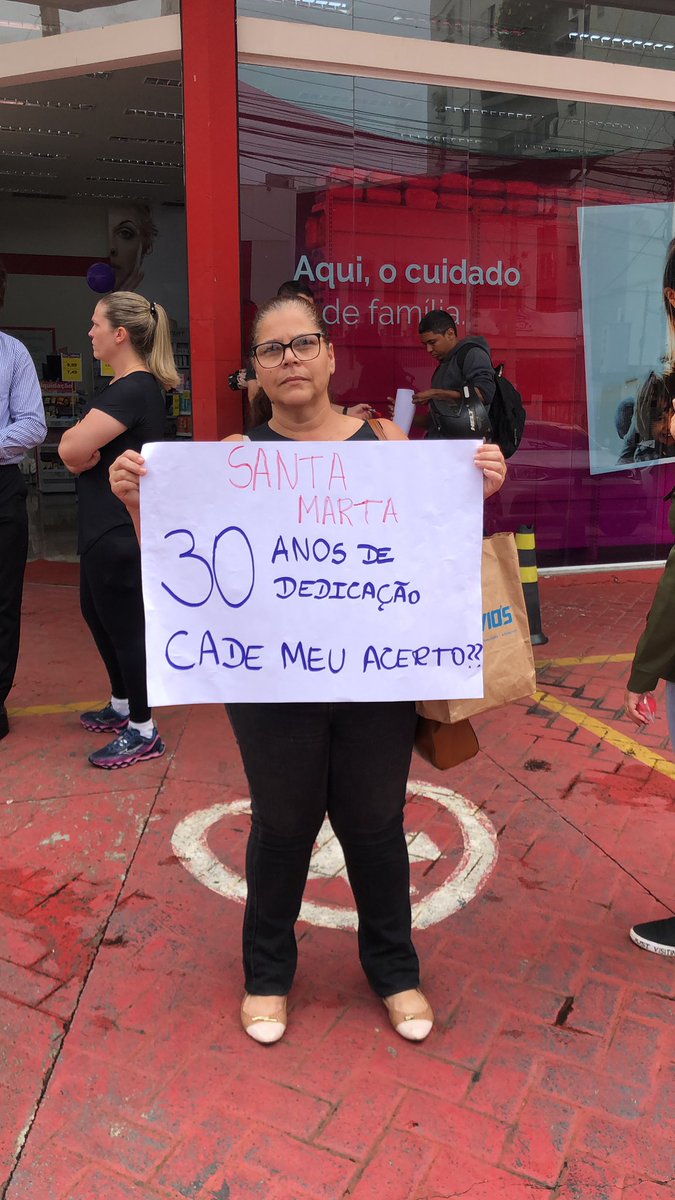 Aqui, o cuidado
de família.
SANTA
MARTA
30 ANOS DE
DEDICAÇÃO
CADE MEU ACERTO??